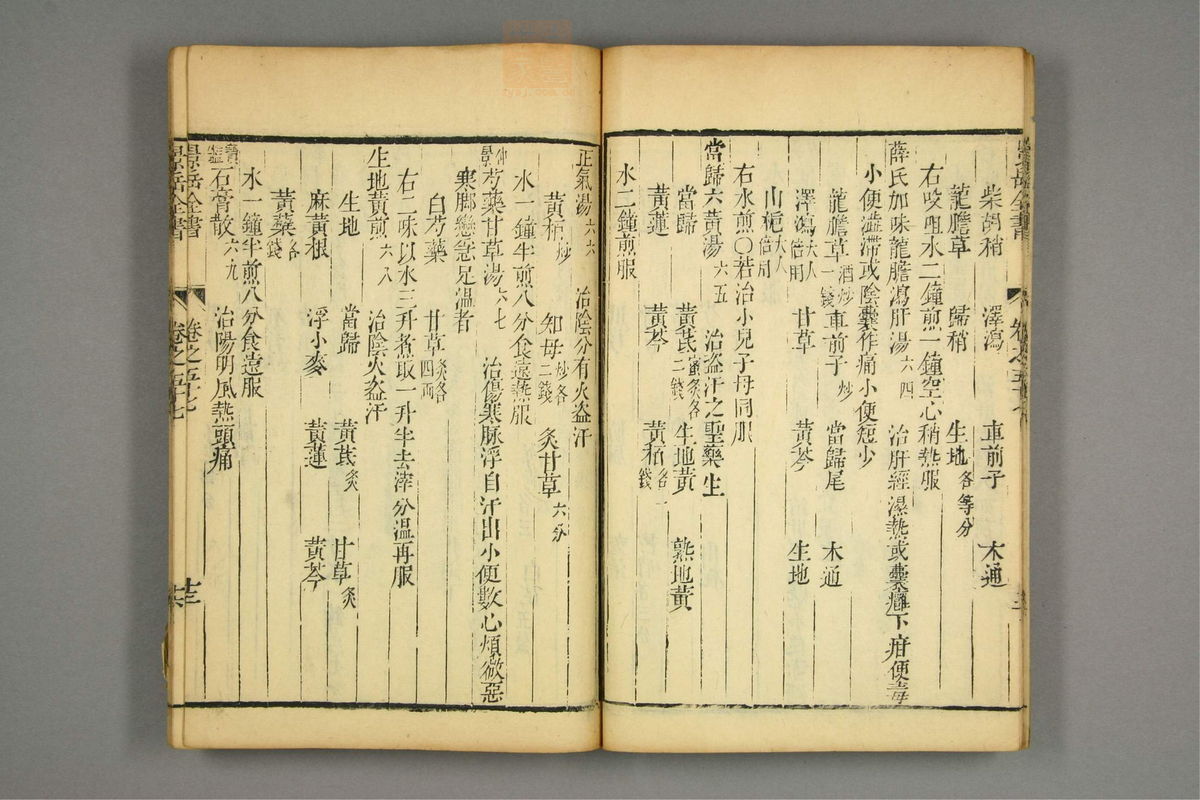 柴胡稍 澤瀉 車前子 木通
龍膽草 歸稍 生地各等分
右㕮咀水二鐘煎一鐘空心稍熱服
薛氏加味龍膽瀉肝湯六四 治肝經濕熱或囊癰下疳便毒
小便澁滯或陰囊作痛小便短少
龍膽草酒炒一錢 車前子炒 當歸尾 木通
澤瀉大人倍用 甘草 黃芩 生地
山梔大人倍用
右水煎〇若治小兒子母同服
當歸六黃湯六五 治盜汗之聖藥 生
當歸 黃芪蜜炙各二錢 生地黃 熟地黃
黃連 黃芩 黃柏各一錢
水二鐘煎服
正氣湯六六 治陰分有火盜汗
黃柏炒 知母炒各二錢 炙甘草六分
水一鐘半煎八分食遠熱服
仲景芍藥甘草湯六七 治傷寒脉浮自汗出小便數心煩微惡
寒脚攣急足溫者
白芍藥 甘草炙各四兩
右二味以水三升煮取一升半去滓分溫再服
生地黃煎六八 治陰火盜汗
生地 當歸 黃芪炙 甘草炙
麻黃根 浮小麥 黃連 黃芩
黃蘗各錢
水一鐘半煎八分食遠服
寶鑑石膏散六九 治陽明風熱頭痛
景岳全書 卷之五十七